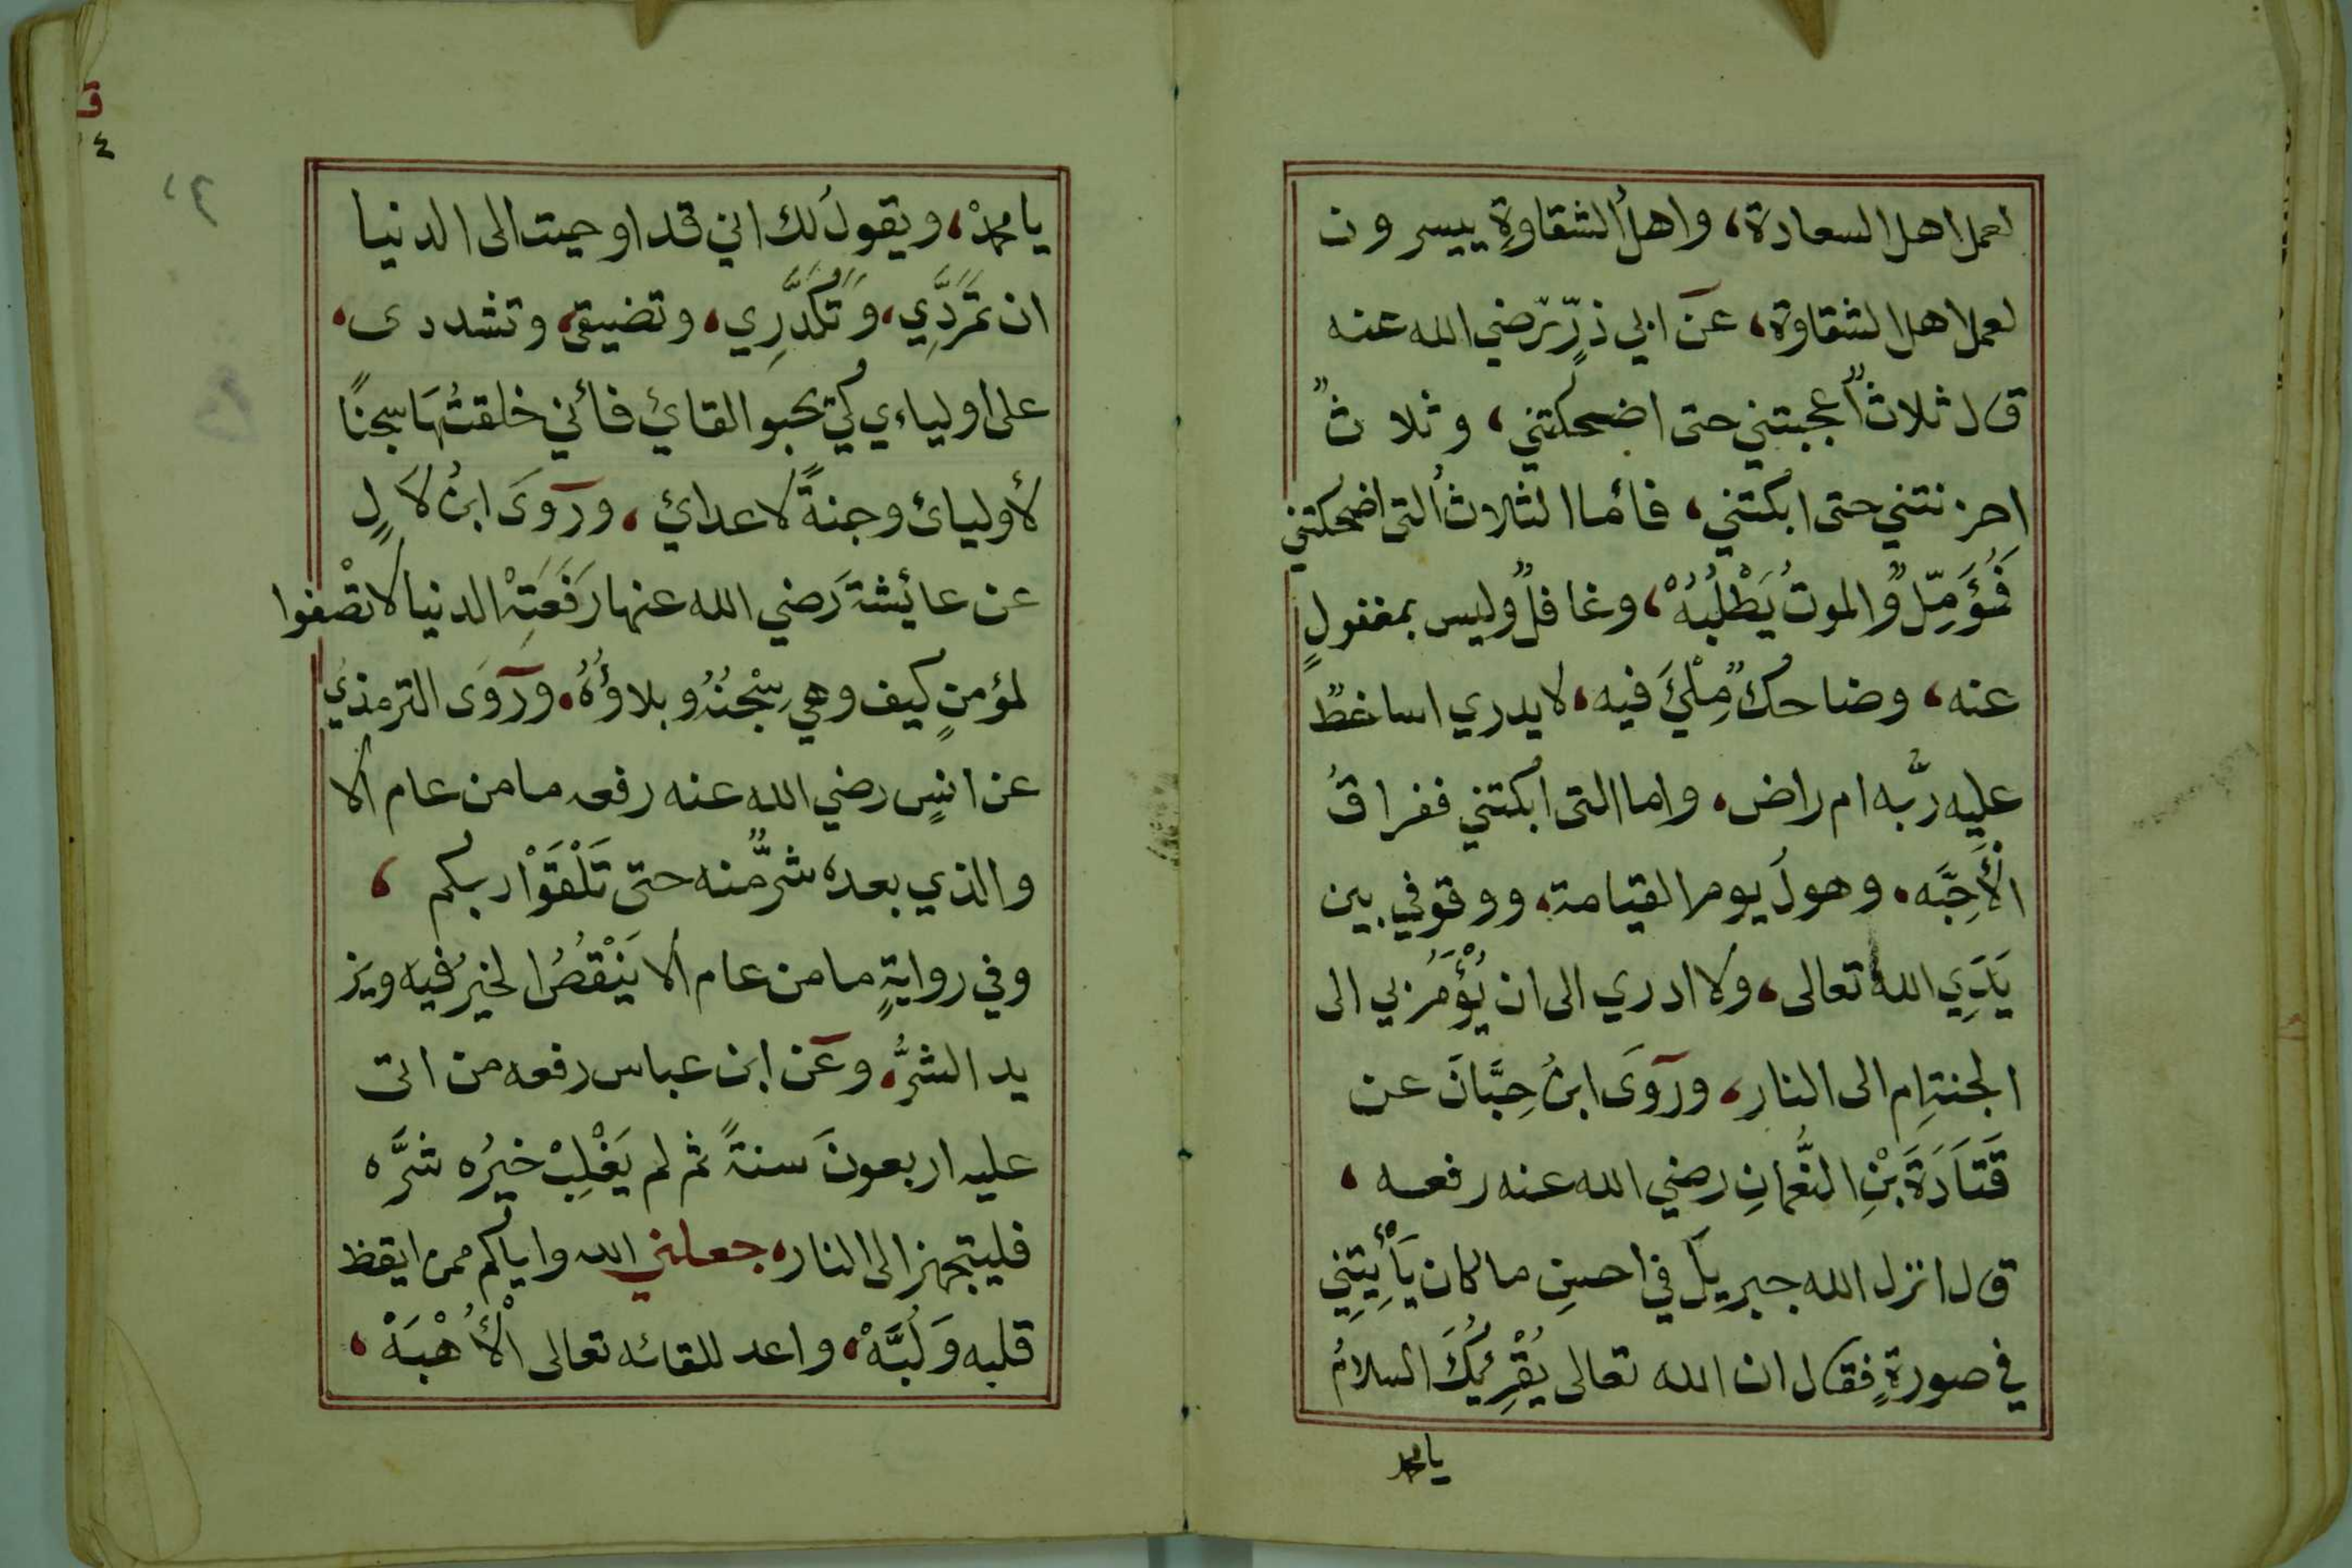 لعمل اهل السعادة، واهلُ الشقاوةِ ييسرون
لعمل اهل الشقاوة، عن ابي ذرٍّ رّضي الله عنه
قال ثلاثٌ اعجبتني حتى اضحكتني، وثلاثٌ
احزنتني حتى ابكتني، فائما الثلاثُ التى اضحكتني
فَمُؤَمِّلٌ وَّالموتُ يَطْلُبُهُ، وغافلٌ وليس بمغفولٍ
عنه، وضاحكٌ مِلْئَ فيه، لا يدري اساخطٌ
عليه ربُّه ام راض، واما التى ابكتني ففراقُ
الْأَحِبَّه، وهولُ يوم القيامة، ووقوفي بين
يَدَيِ الله تعالى، ولا ادري الى ان يُؤْمَرُ بي الى
الجنةِ ام الى النار، ورَوَى ابنُ حِبَّانَ عن
قَتَادَةَ بْنِ النُّعْمانِ رضي الله عنه رفعه،
قال انزل الله جبريلَ في احسنِ ما كان يَأْتِيْنِي
في صورةٍ فقال ان الله تعالى يُقْرِئُكَ السلامُ
يا محمد
يا محمدْ، ويقولُ لك اني قد اوحيت الى الدنيا
ان تَمَرَّدِي، وَتَكَدَّرِي، وتضيقى، وتشددى،
على اولياءي كَيْ يحبو القائي فأني خلقتُها سجنًا
لأوليائ وجنةً لاعدائي، ورَوَى ابنُ لَالٍ
عن عايشة رَضي الله عنها رَفَعَتْهِ الدنيا لا تصْفوا
لمؤمنٍ كيف وهي سِجْنُهُ وبلاؤُهُ، ورَوَى الترمذيُ
عن انسٍ رضي الله عنه رفعه ما من عام الا
والذي بعده شرٌّ منه حتى تَلْقَوْا ربكم،
وفي روايةٍ ما من عام الا يَنْقُصُ الخيرُ فيه ويز
يد الشرُّ، وعَن ابن عباس رفعه من اتى
عليه اربعونَ سنةً ثم لم يَغْلِبْ خيرُه شرَّه
فليتجهز الى النار، جعلني الله واياكم ممن ايقظ
قلبه وَلُبَّهْ، واعد للقائه تعالى الْأُهْبَهْ،